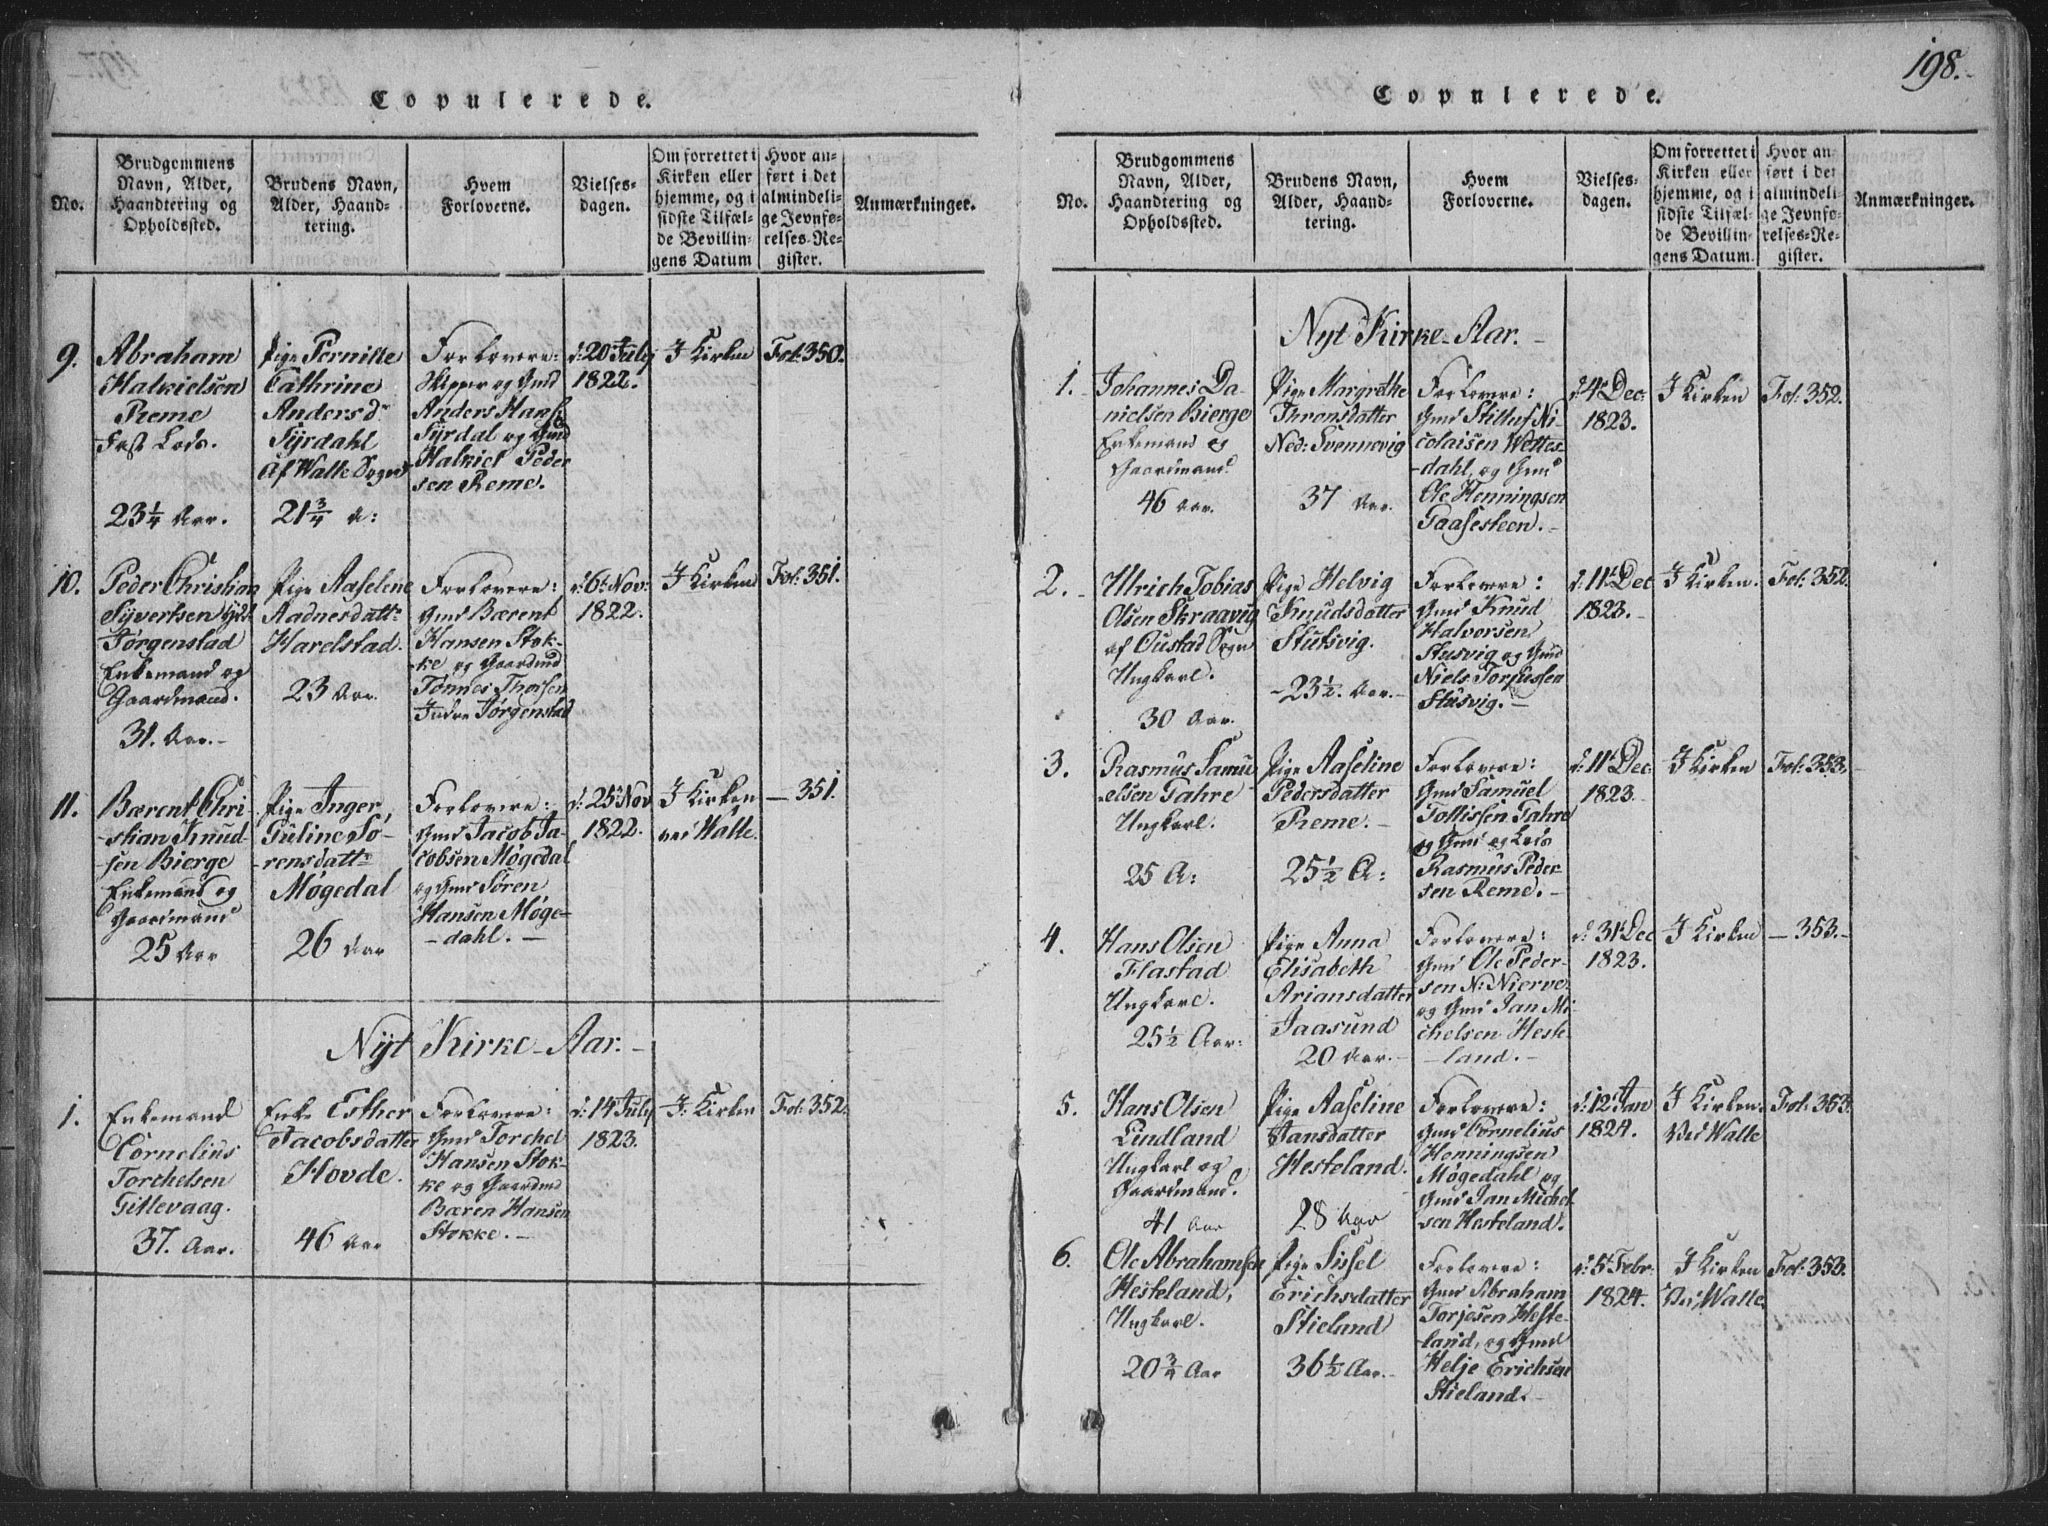 Copulerede.
No.
Brudgommens
Navn, Alder,
Haandtering og
Opholdssted.
Brudens Navn,
Alder, Haand-
tering.
Hvem
Forloverne.
Vielses-
dagen.
Om forrettet i
Kirken eller
hjemme, og i
sidste Tilfæl-
de Bevillin-
gens Datum
Hvor an-
ført i det
almindeli-
ge Jevnfø-
relses-Re-
gister.
Anmærkninger.
9.
Abraham
Halkielsen
Reme
Fast Lods.
23 1/4 Aar.
Pige Pernille
Cathrine
Andersd
Syrdahl
af Walle Sogn
21 3/4 A:
Forlovere:
Skipper og Gmd
Anders Hans
Syrdal og Gmd
Halkiel Peder
sen Reme.
d: 20 July
1822.
I Kirken
Fol: 350.
10.
Peder Christian
Syvertsen
Jørgenstad
Enkemand og
Gaardmand.
31. Aar.-
Pige Aaselene
Aadnesdattr
Harelstad.
23 Aar.
Forlovere:
Gmd Bærent
Hansen Stok-
ke og Gaardmd
Tønnes Thorsen
Indre Jørgenstad
d: 6t Nov:
1822.
I Kirken
Fol: 351.
11.
Bærent Chri-
stian Knud-
sen Bierge
Enkemand og
Gaardmand
25 Aar
Pige Inger,
Guline Sø-
rensdattr
Møgedal
26 Aar
Forlovere:
Gmd Jacob Ja-
cobsen Møgedal
og Gmd Søren
Hansen Møge-
-dahl. -
d: 25 Nov
1822.
I Kirken
ved Walle.
- 351.
Nyt Kirke-Aar. -
1.
Enkemand
Cornelius
Torchelsen
Gillevaag.
37. Aar.
Enke Esther
Jacobsdatter
Hovde.
46 Aar
Forlovere:
Gmd Torchel
Hansen Stok-
ke og Gaardmd
Bæren Hansen
Stokke. -
d: 14 July
1823.
I Kirken
Fol: 352.
198.
Copulerede.
No.
Brudgommens
Navn, Alder,
Haandtering og
Opholdssted.
Brudens Navn,
Alder, Haand-
tering.
Hvem
Forloverne.
Vielses-
dagen.
Om forrettet i
Kirken eller
hjemme, og i
sidste Tilfæl-
de Bevillin-
gens Datum.
Hvor an-
ført i det
almindeli-
ge Jevnfø-
relses-Re-
gister.
Anmærkninger.
Nyt Kirke-Aar. -
1.
Johannes Da-
nielsen Bierge
Enkemand og
Gaardmand
46 Aar.
Pige Margrethe
Thronsdatter
Ned: Svennevig
37 Aar.
Forlovere:
Gmd Stilluf Ni-
colaisen Wettes-
-dahl, og Gmd
Ole Henningsen
Gaasesteen. -
d 4 Dec:
1823.
I Kirken
Fol: 352.
2. -
Ulrich Tobias
Olsen Skraavig
af Oustad Sogn
Ungkarl.
30 Aar.
Pige Helvig
Knudsdatter
Stusvig.
- 23 1/2. Aar. -
Forlovere:
Gmd Knud
Halvorsen
Stusvig og Gmd
Niels Torjussen
Stusvig. -
d: 11t Dec
1823.
I Kirken.
Fol: 352.
3.
Rasmus Samu
elsen Gahre
Ungkarl.
25 A:
Pige Aaseline
Pedersdatter
Reme. -
25 1/2 A:
Forlovere:
Gmd Samuel
Tollissen Gahre
og Gmd og Lods
Rasmus Peder-
sen Reme. -
d: 11t Dec
1823.
I Kirken
Fol: 353.
4.
Hans Olsen
Flastad
Ungkarl.
25 1/2 Aar:
Pige Anna
Elisabeth
Ariansdatter
Jaasund
20 Aar. -
Forlovere:
Gmd Ole Peder-
sen N: Nierve
og Gmd Jan Mi-
chelsen Heste-
-land. -
d: 31t Dec
1823.
I Kirken
- 353. -
5.
Hans Olsen
Lindland
Ungkarl og
Gaardmand.
41 Aar
Pige Aaseline
Jansdatter
Hesteland.
28 Aar
Forlovere:
Gmd Cornelius
Henningsen
Møgedahl og
Gmd Jan Michel
sen Hesteland.
d: 12 Jan
1824.
I Kirken.
Ved Walle
Fol: 353.
6.
Ole Abrahamsen
Hesteland,
Ungkarl.
20 3/4 Aar
Pige Sissel
Erichsdatter
Stieland
36 1/2 Aar. -
Forlovere:
Gmd Abraham
Torjesen Heste-
land, og Gmd
Helje Erichsen
Stieland. -
d: 5t Febr:
1824.
I Kirken
Ved Walle
Fol: 353.